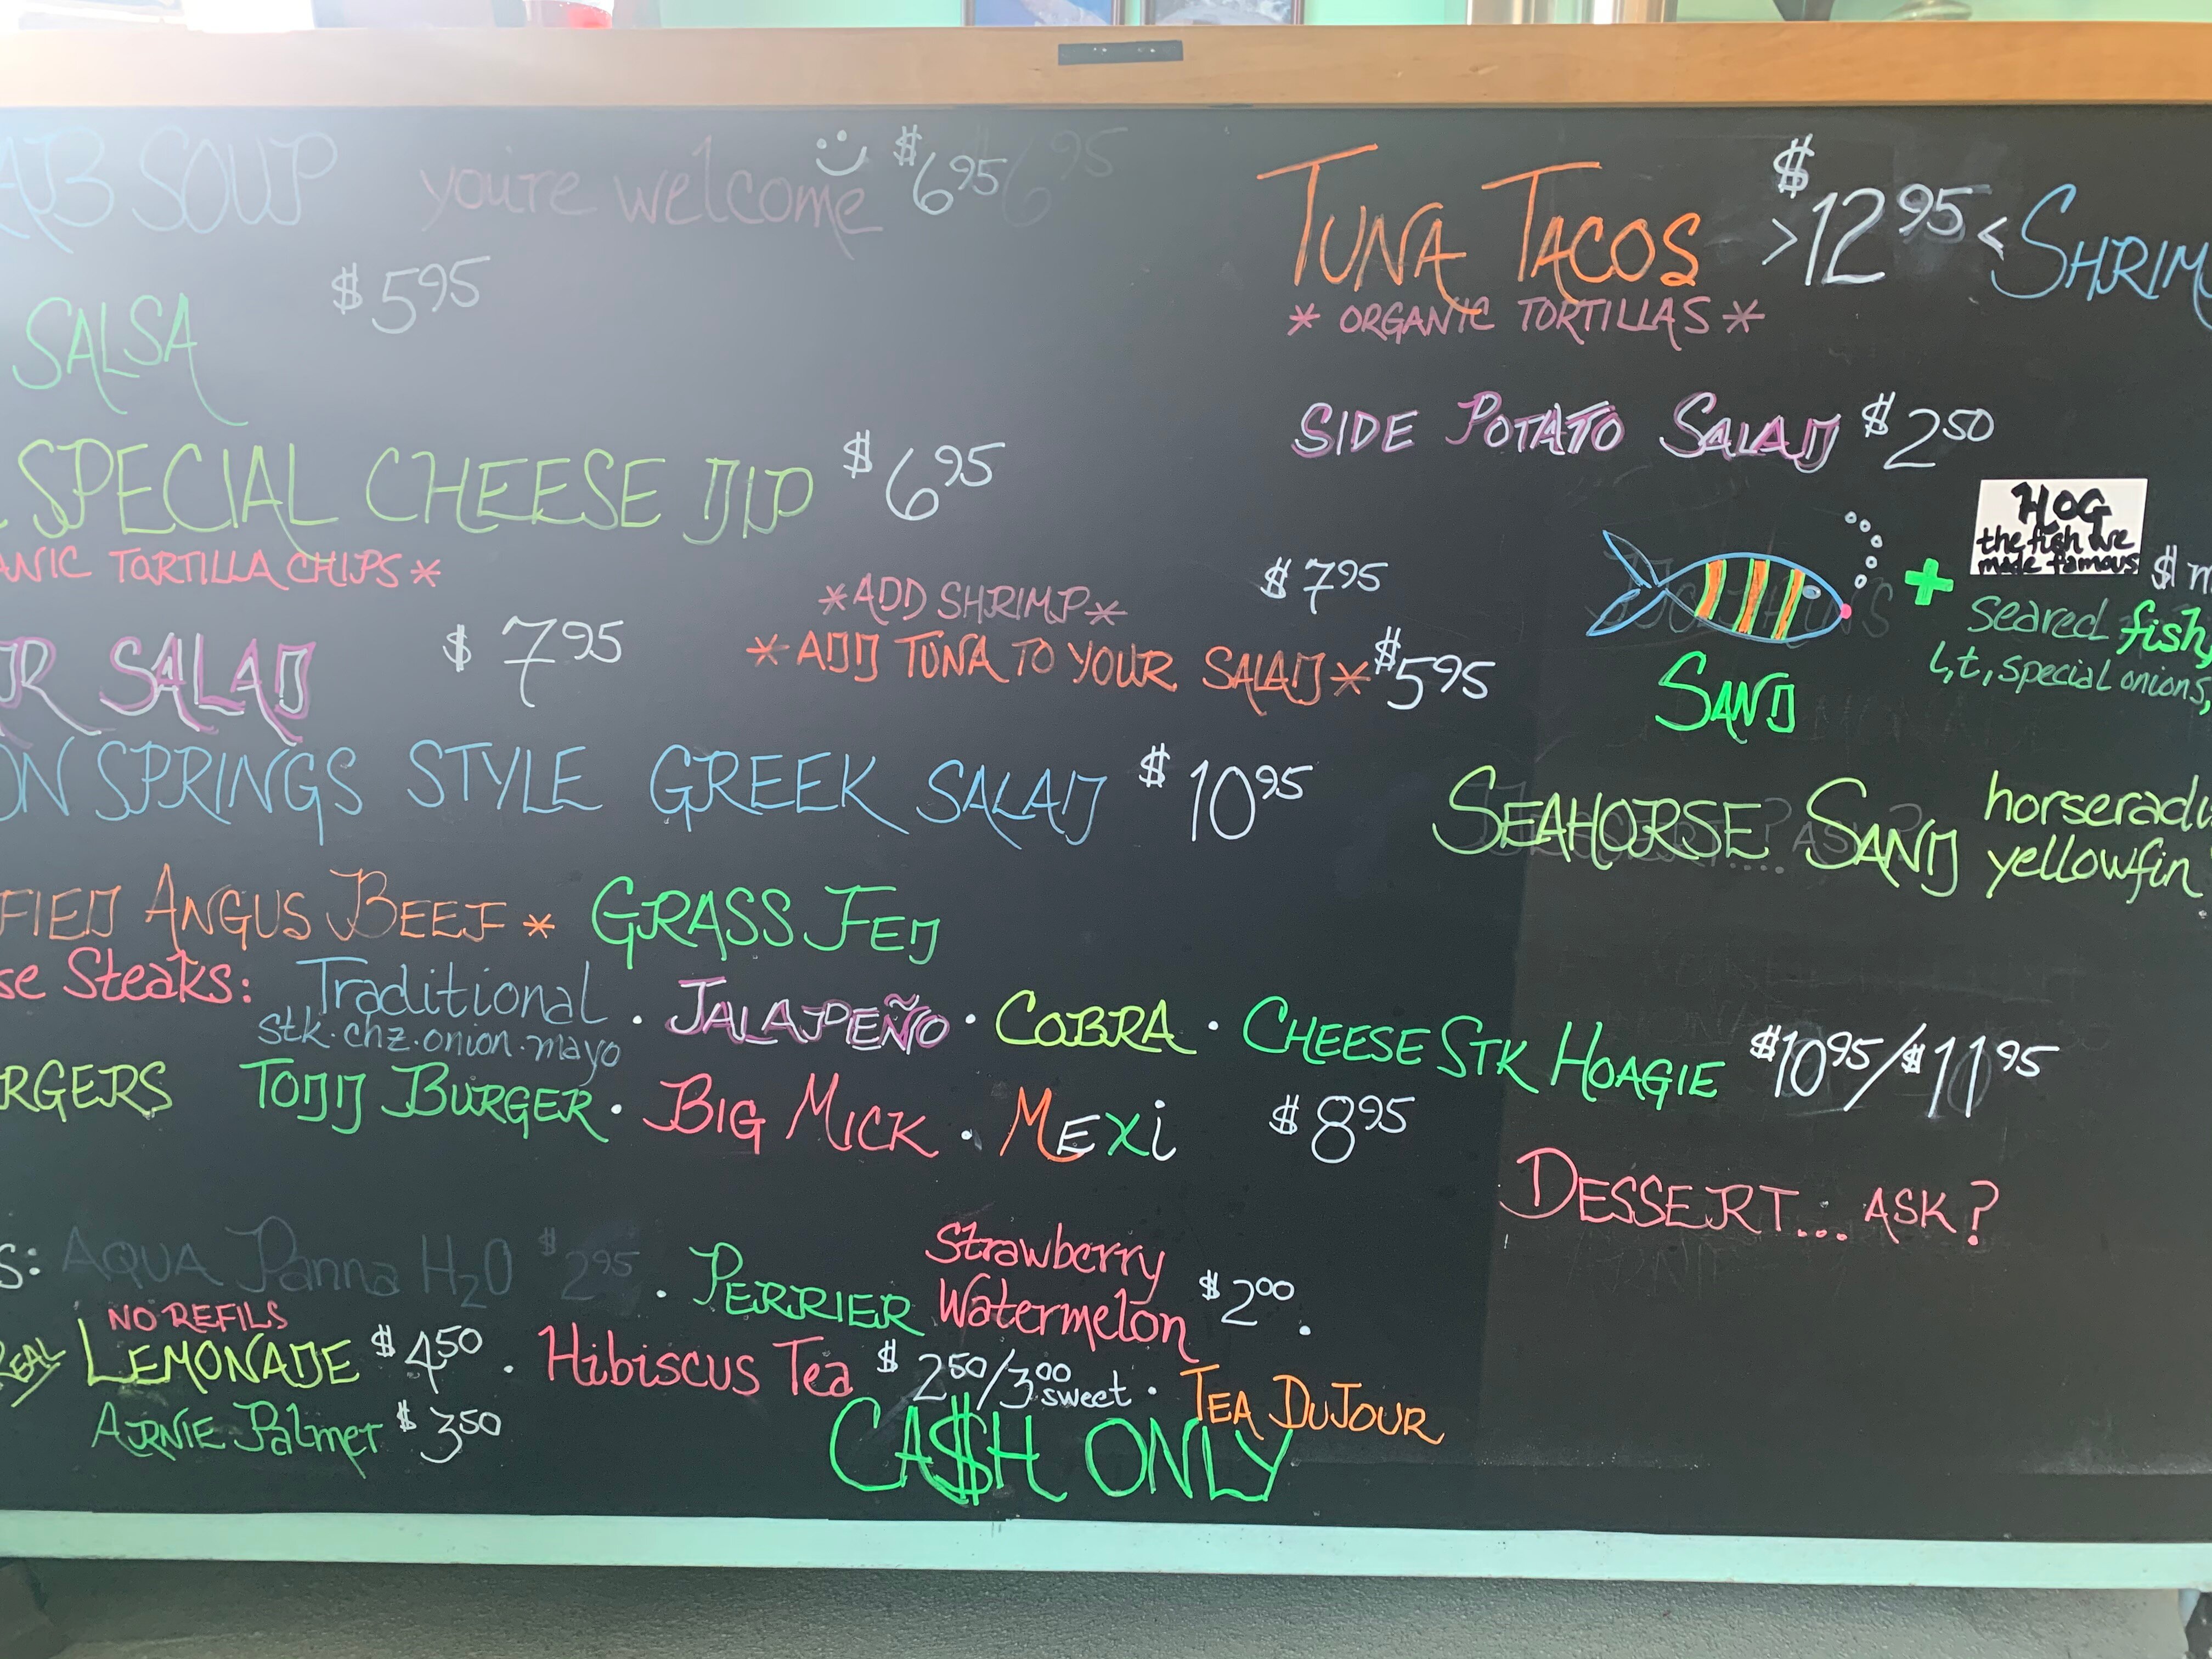 SOUP you're welcome $6.95
SALSA $5.95
SPECIAL CHEESE DIP $6.95
ANIC TORTILLA CHIPS *
*ADD SHRIMP* $7.95
R SALAD $7.95 *ADD TUNA TO YOUR SALAD* $5.95
ON SPRINGS STYLE GREEK SALAD $10.95
FIED ANGUS BEEF * GRASS FED
se Steaks: Traditional · JALAPEÑO · COBRA · CHEESE STK HOAGIE $10.95/$11.95
stk. chz. onion. mayo
RGERS TODD BURGER · BIG MICK · MEXi $8.95
S: AQUA Panna H2O $2.95 · PERRIER Strawberry Watermelon $2.00 .
NO REFILS
REAL LEMONADE $4.50 · Hibiscus Tea $2.50/3.00 sweet · TEA DUJOUR
ARNIE Palmer $3.50
CA$H ONLY
TUNA TACOS >$12.95< SHRIM
* ORGANIC TORTILLAS *
SIDE POTATO SALAD $2.50
+ HOG
the fish we
made famous
$ m
seared fish,
l, t, special onions,
SAND
SEAHORSE SAND horseradi
yellowfin
DESSERT... ASK?